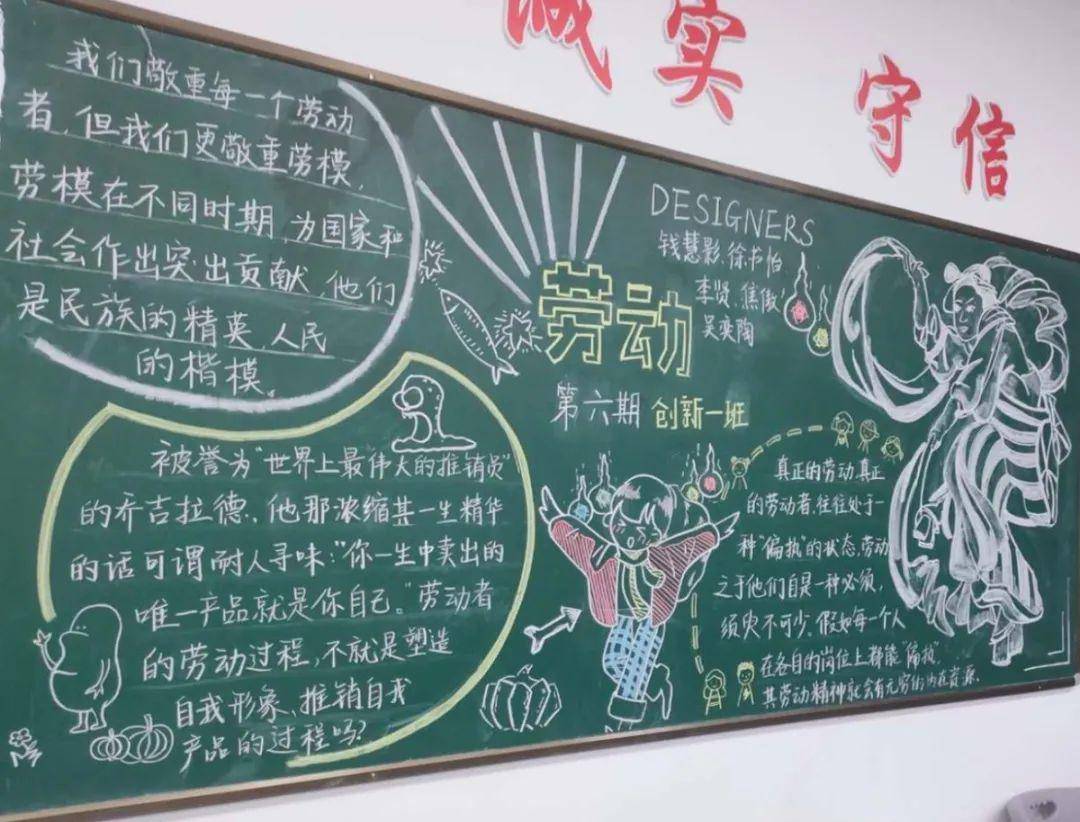 诚实 守信
我们敬重每一个劳动
者,但我们更敬重劳模,
劳模在不同时期,为国家和
社会作出突出贡献,他们
是民族的精英,人民
的楷模。
被誉为“世界上最伟大的推销员”
的乔吉拉德,他那浓缩其一生精华
的话可谓耐人寻味:“你一生中卖出的
唯一产品就是你自己。”劳动者
的劳动过程,不就是塑造
自我形象、推销自我
产品的过程吗?
劳动
第六期 创新一班
DESIGNERS
钱慧影、徐书怡
李贤、焦傲
吴奕陶
真正的劳动,真正
的劳动者,往往处于一
种“偏执”的状态,劳动
之于他们自是一种必须,
须臾不可少,假如每一个人
在各自的岗位上都能“偏执”
其劳动精神就会有无穷的内在资源。